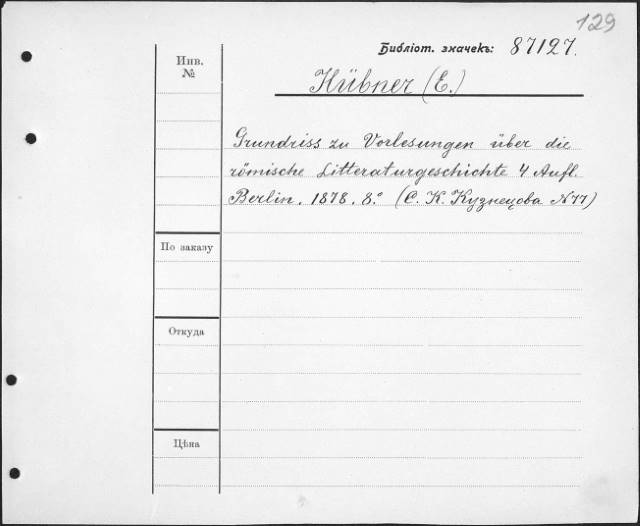 129
Библіот. значекъ: 87127.
Инв. №
Hübner (E.)
Grundriss zu Vorlesungen über die
römische Litteraturgeschichte 4 Aufl.
Berlin. 1878. 8.° (С. К. Кузнецова №77)
По заказу
Откуда
Цѣна